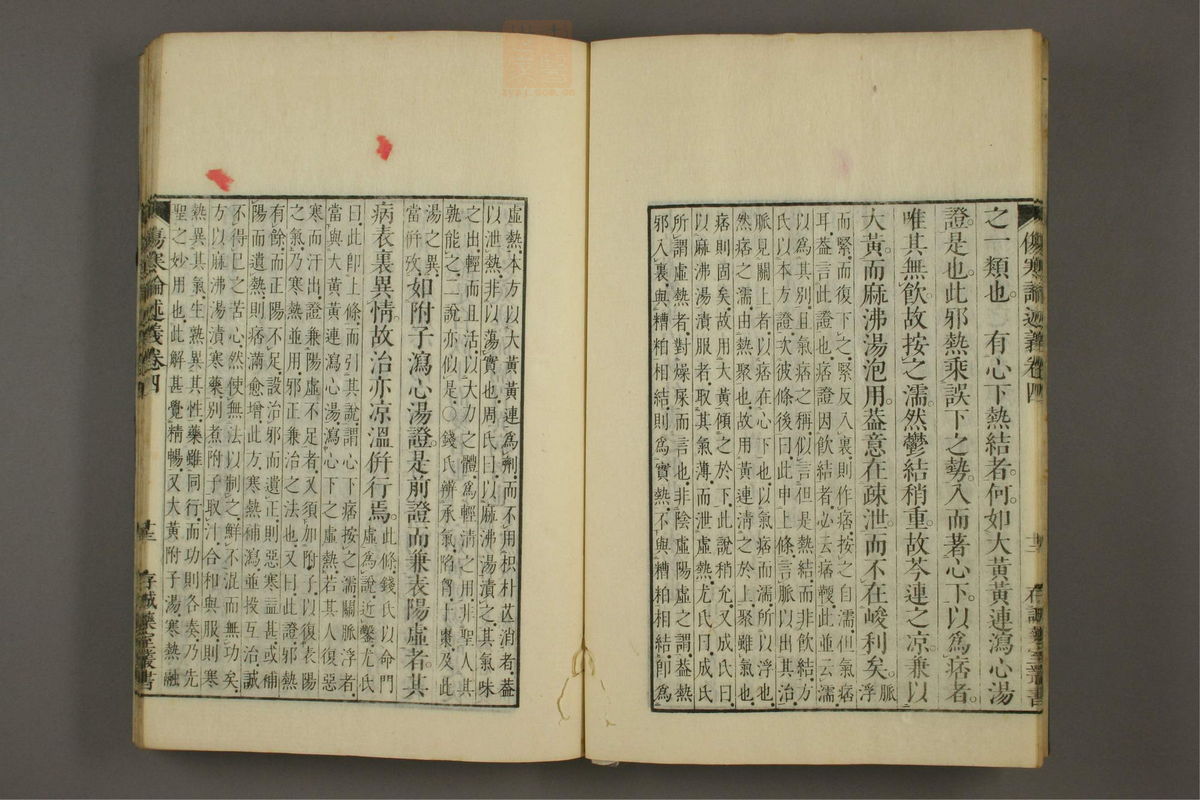 之一類也。有心下熱結者。何如大黃黃連瀉心湯
證。是也。此邪熱乘誤下之勢。入而著心下。以爲痞者。
唯其無飲。故按之濡。然鬱結稍重。故芩連之涼。兼以
大黃。而麻沸湯泡用。葢意在疎泄。而不在峻利矣。脈浮
而緊。而復下之。緊反入裏。則作痞。按之自濡。但氣痞
耳。葢言此證也。痞證因飲結者。必云痞鞕。此並云濡
以爲其別。且氣痞之稱。似言但是熱結而非飲結。方
氏以本方證。次彼條後曰。此申上條。言脈以出其治。
脈見關上者。以痞在心下也。以氣痞而濡。所以浮也。
然痞之濡。由熱聚也。故用黃連淸之於上。聚雖氣也。
痞則固矣。故用大黃傾之於下。此說稍允。又成氏曰。
以麻沸湯漬服者。取其氣薄而泄虛熱。尤氏曰。成氏
所謂虛熱者。對燥屎而言也。非陰虛陽虛之謂。葢熱
邪入裏。與糟粕相結。則爲實熱。不與糟粕相結。卽爲
傷寒論述義卷四 十二 存誠藥室叢書
虛熱。本方以大黃黃連爲劑。而不用枳朴芒消者。葢
以泄熱。非以蕩實也。周氏曰。以麻沸湯漬之。其氣味
之出。輕而且活。以大力之體。爲輕淸之用。非聖人其
孰能之。二說亦似是。○錢氏辨承氣。陷胷。十棗。及此
湯之異。當併攷。如附子瀉心湯證。是前證而兼表陽虛者。其
病表裏異情。故治亦涼溫併行焉。此條。錢氏以命門虛爲說。近鑿。尤氏
曰。此卽上條。而引其說。謂心下痞。按之濡。關脈浮者。
當與大黃黃連瀉心湯。瀉心下之虛熱。若其人復惡
寒而汗出。證兼陽虛不足者。又須加附子。以復表陽
之氣。乃寒熱並用。邪正兼治之法也。又曰。此證邪熱
有餘。而正陽不足。設治邪而遺正。則惡寒益甚。或補
陽而遺熱。則痞滿愈增。此方寒熱補瀉。並投互治。誠
不得已之苦心。然使無法以制之。鮮不混而無功矣。
方以麻沸湯漬寒藥。別煮附子取汁。合和與服。則寒
熱異其氣。生熟異其性。藥雖同行。而功則各奏。乃先
聖之妙用也。此解甚覺精暢。又大黃附子湯。寒熱融
傷寒論述義卷四 十三 存誠藥室叢書